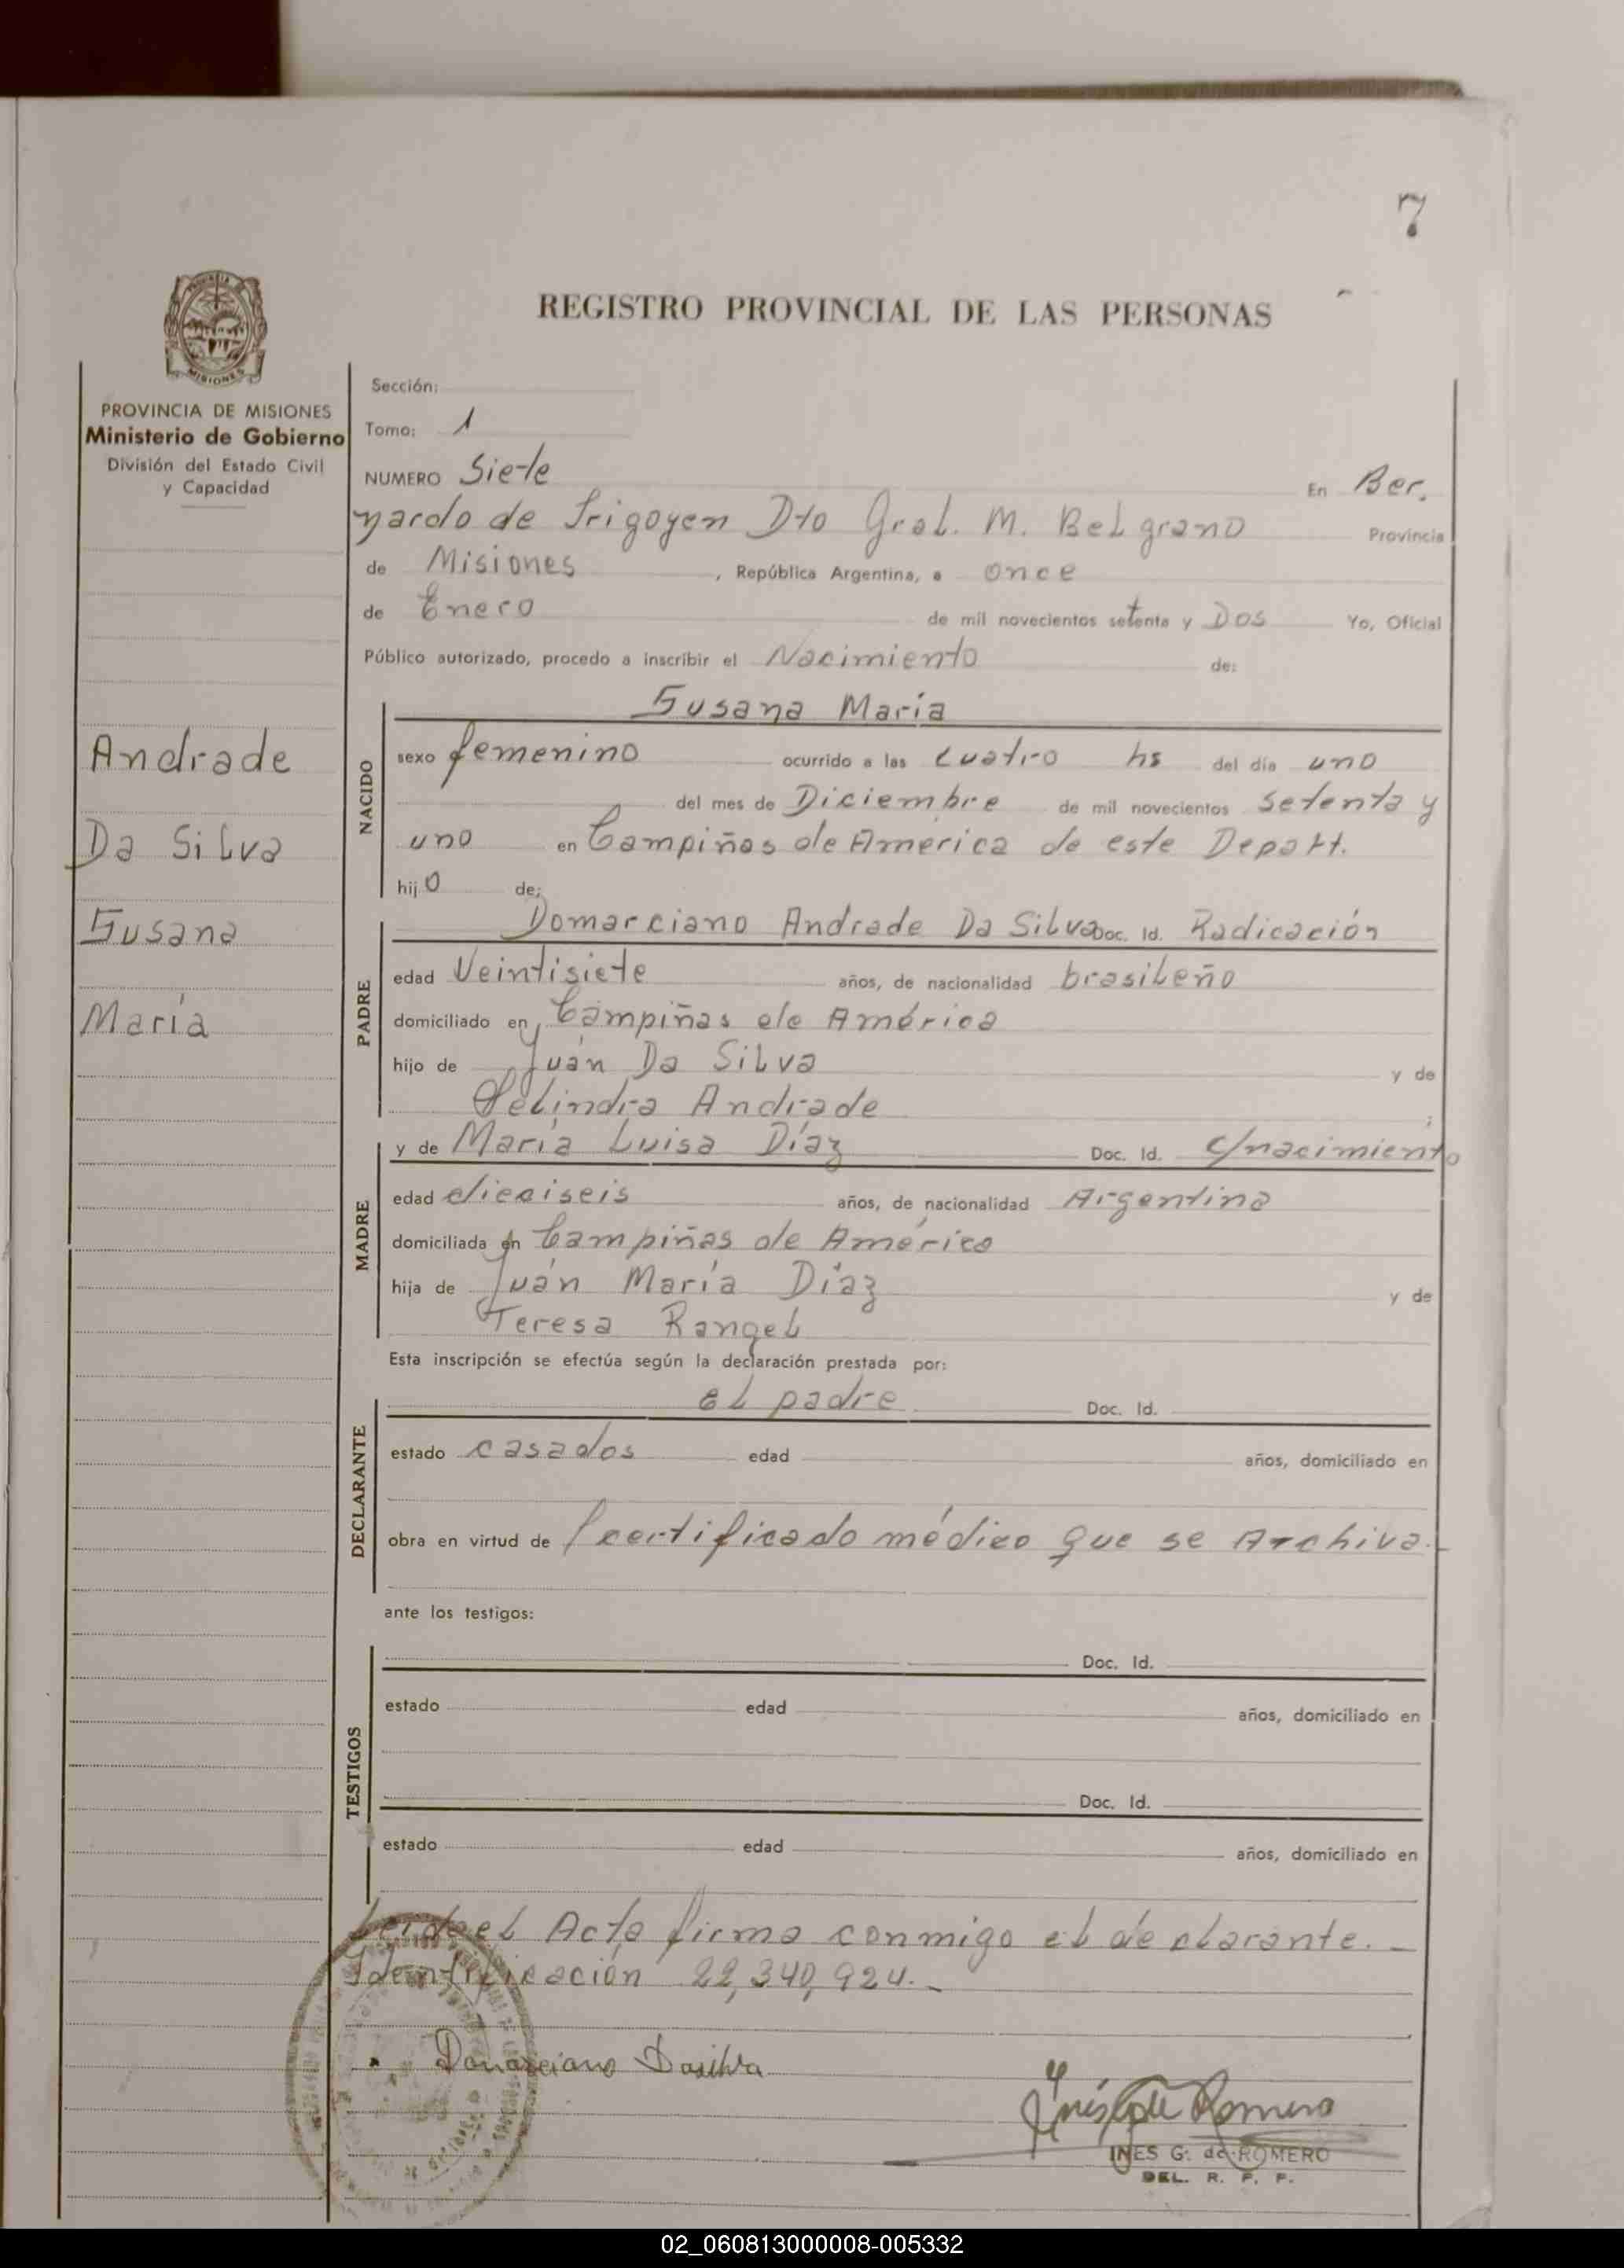 7
REGISTRO PROVINCIAL DE LAS PERSONAS
MISIONES
PROVINCIA DE MISIONES
Ministerio de Gobierno
División del Estado Civil
y Capacidad
Andrade
Da Silva
Susana
María
Sección:
Tomo: 1
NUMERO Siete En Ber.
nardo de Irigoyen Dto Gral. M. Belgrano Provincia
de Misiones, República Argentina, a once
de Enero de mil novecientos setenta y Dos Yo, Oficial
Público autorizado, procedo a inscribir el Nacimiento de:
Susana María
NACIDO
sexo femenino ocurrido a las cuatro hs del día uno
del mes de Diciembre de mil novecientos setenta y
uno en Campiñas de America de este Depart.
hijo de:
Domarciano Andrade Da Silva Doc. Id. Radicación
PADRE
edad Veintisiete años, de nacionalidad brasileño
domiciliado en Campiñas de América
hijo de Juán Da Silva y de
Andrade;
y de María Luisa Díaz Doc. Id. c/nacimiento
MADRE
edad dieciseis años, de nacionalidad Argentina
domiciliada en Campiñas de América
hija de Juán María Díaz y de
Teresa Rangel
Esta inscripción se efectúa según la declaración prestada por:
el padre Doc. Id.
DECLARANTE
estado casados edad años, domiciliado en
obra en virtud de certificado médico que se Archiva.-
ante los testigos:
Doc. Id.
TESTIGOS
estado edad años, domiciliado en
Doc. Id.
estado edad años, domiciliado en
Leida el Acta firma conmigo el declarante.-
Identificación 22,340,924.-
Domarciano Dasilva
Inés G de Romero
INES G. de ROMERO
DEL. R. P. P.
02_060813000008-005332